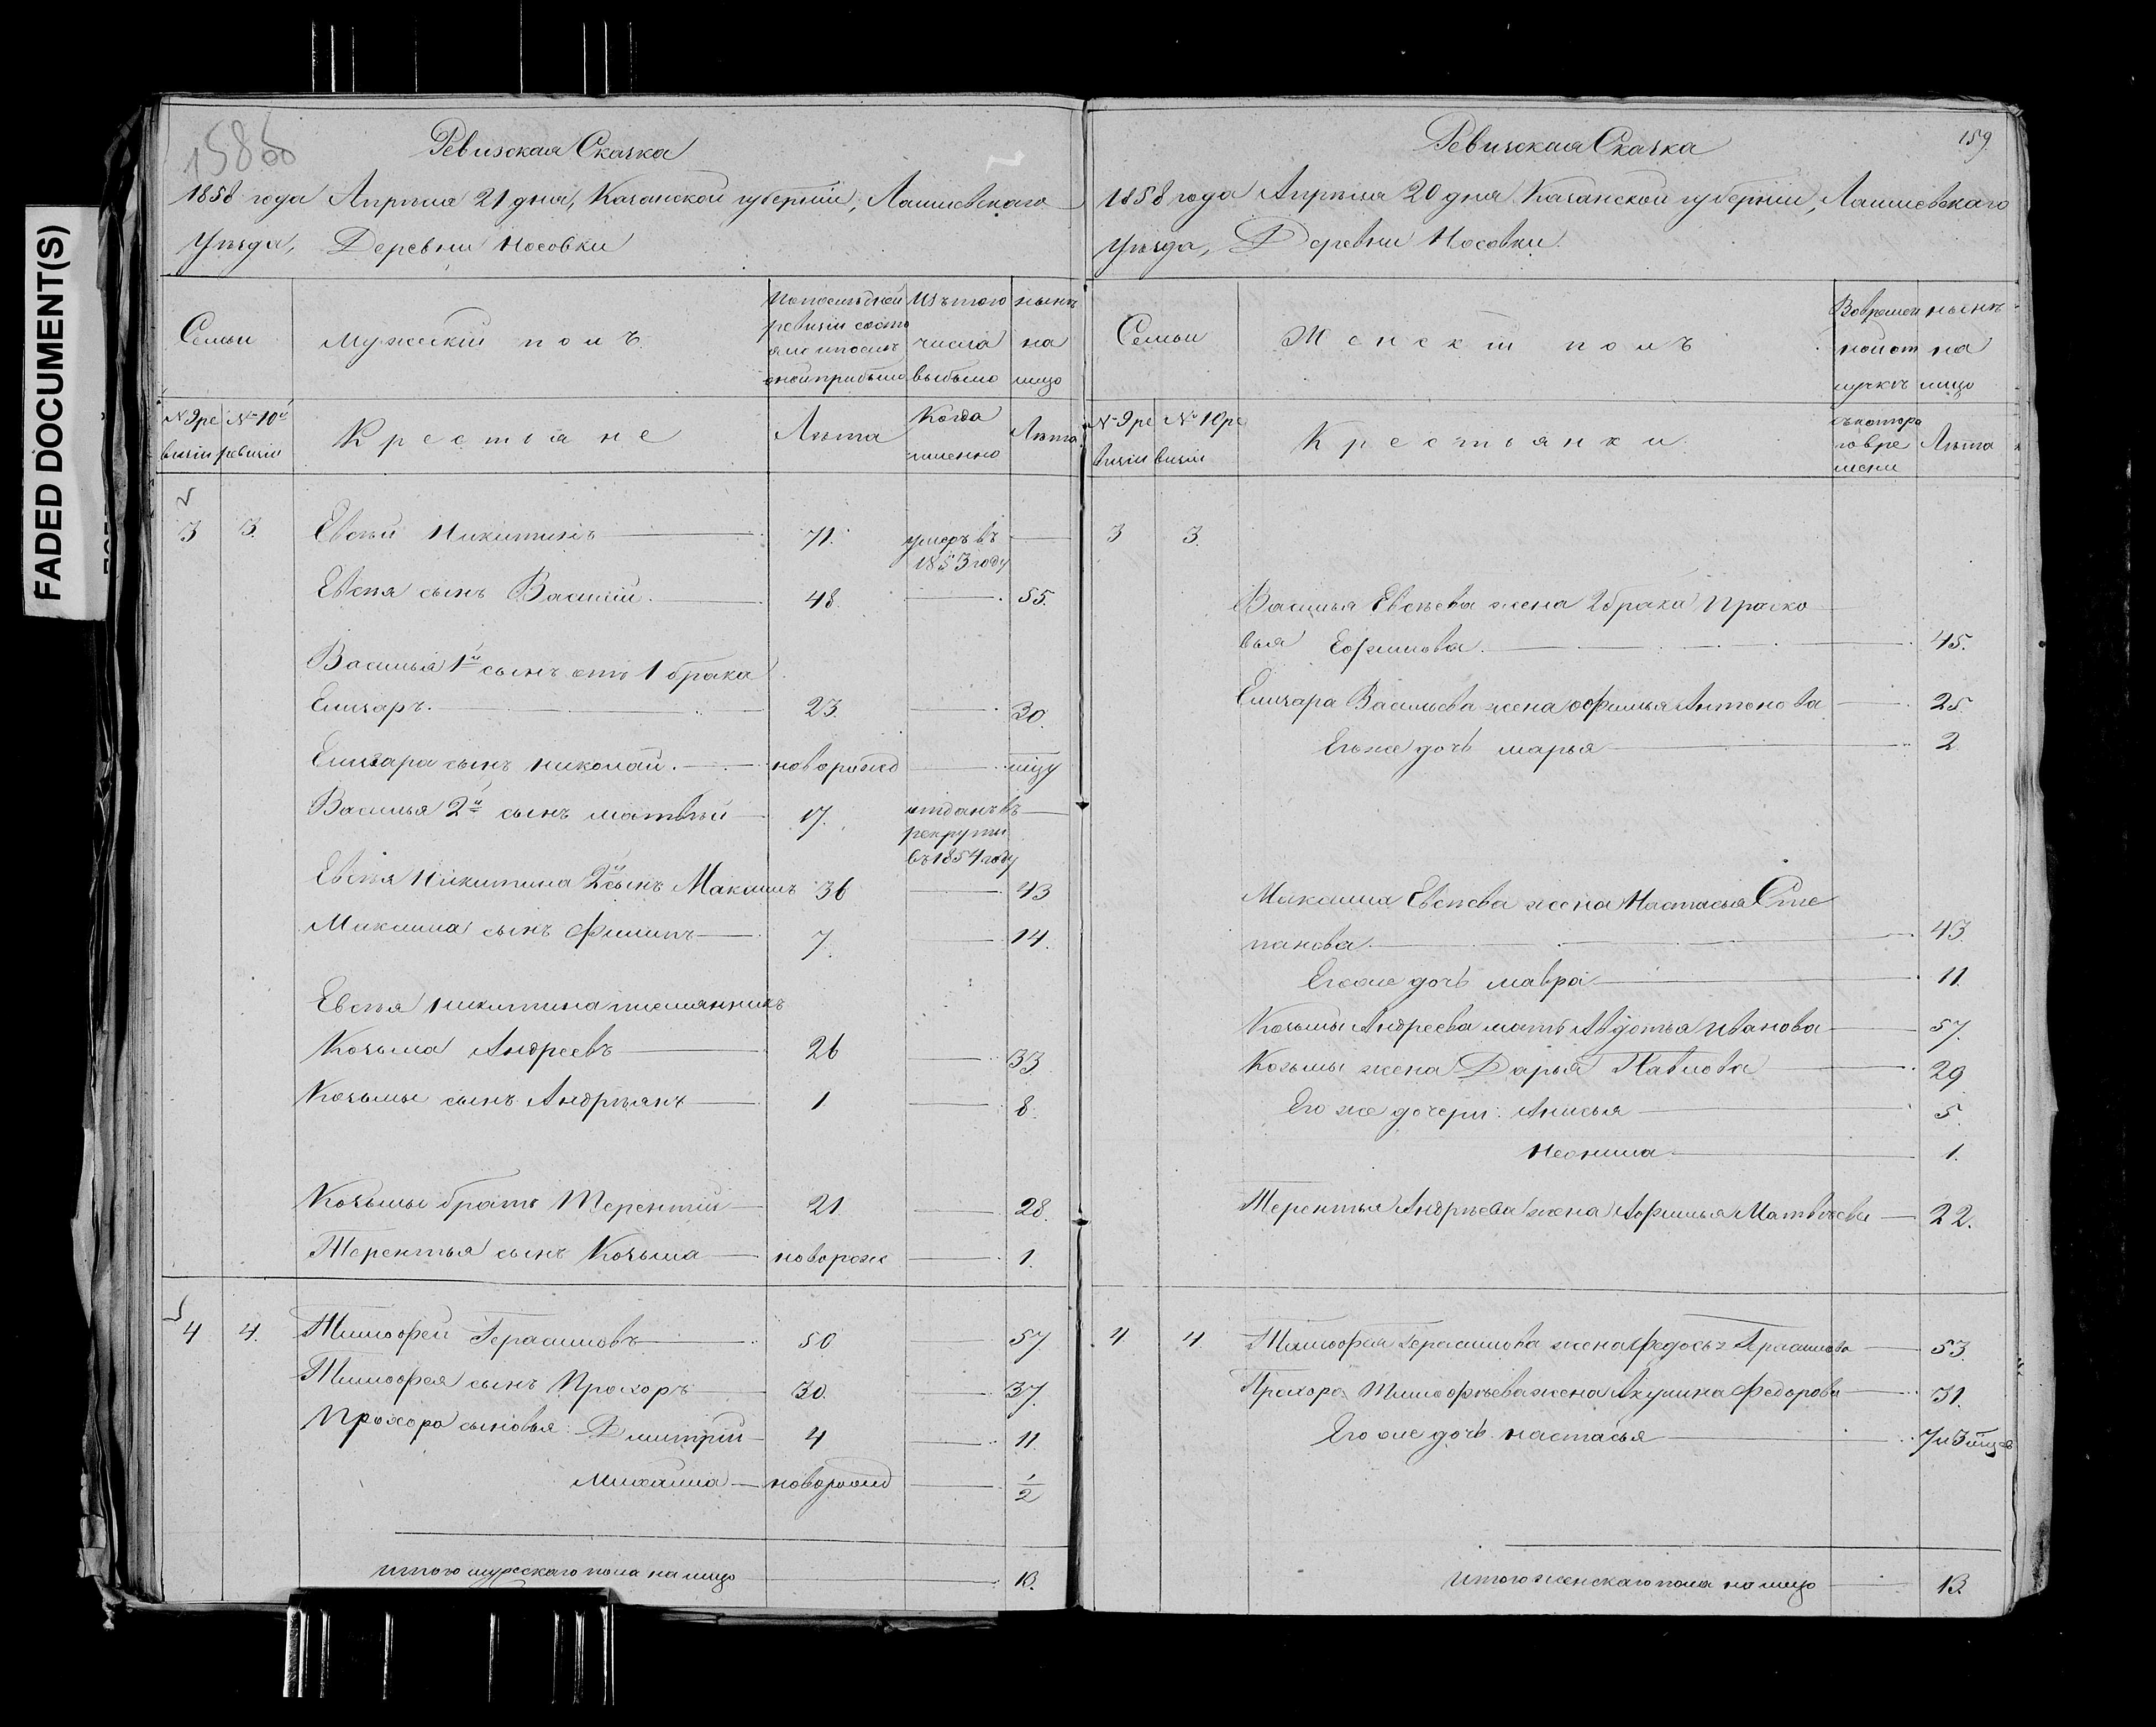 FADED DOCUMENT(S)
Ревизская Сказка
1858 года Апреля 21 дня, Казанской губернiи, Лаишевскаго
Уезда, Деревни Носовки
Семьи
мужескiй полъ
По последней
ревизiи состо
яло и после
оной прибыло
Изъ того
числа
выбыло
ныне
на
лицо
№ 9 ре
визiи
№ 10й
ревизiи
Крестьяне
Лета
Когда
именно
Лета
3 3. Евсей Никитинъ 71. умеръ въ
1853 году
Евсея сынъ Василiй. 48. 55.
Василья 1й сынъ отъ 1 брака
Елизаръ. 23. 30.
Елизара сынъ николай. новорожд мцу
Василья 2й сынъ матвей 17. отданъ въ
рекруты
въ 1854 году
Евсея Никитина 2й сынъ Максимъ 36 43
Максима сынъ Филипъ 7. 14.
Евсея никитина племянникъ
Козьма Андреевъ 26 33
Козьмы сынъ Андреянъ 1 8.
Козьмы братъ Терентiй 21. 28.
Терентья сынъ Козьма новорож 1.
4 4. Тимофей Герасимовъ 50 57
Тимофея сынъ Прохоръ 30. 37.
Прохора сыновья: Дмитрiй 4 11.
Михаила новорожд 1/2
Итого мужескаго пола на лицо
159
Ревизская Сказка
1858 года Апреля 20 дня Казанской губернiи, Лаишевскаго
Уезда, Деревни Носовки.
Семьи
Женскiй полъ
Во времен
ной от
лучке
ныне
на
лицо
№ 9 ре
визiи
№ 10 ре
визiи
Крестьянки
съ которо
го вре
мени
Лета
3 3.
Василья Евсеева жена 2 брака Праско
вья Ефимова. 45.
Елизара Васильева жена Афимья Антонова 25.
Его же дочь марья 2
Максима Евсеева жена Настасья Сте
панова. 43.
Его же дочь мавра 11.
Козьмы Андреева мать Авдотья Иванова 57.
Козьмы жена Дарья Павлова 29
Его же дочери: Анисья 5.
Неонила 1.
Терентья Андреева жена Афимья Матвеева 22.
4 4. Тимофея Герасимова жена Федосья Герасимова 53.
Прохора Тимофеева жена Акулина Федорова 31.
Его же дочь настасья 7 и 3 мце
Итого женскаго пола на лицо 13.